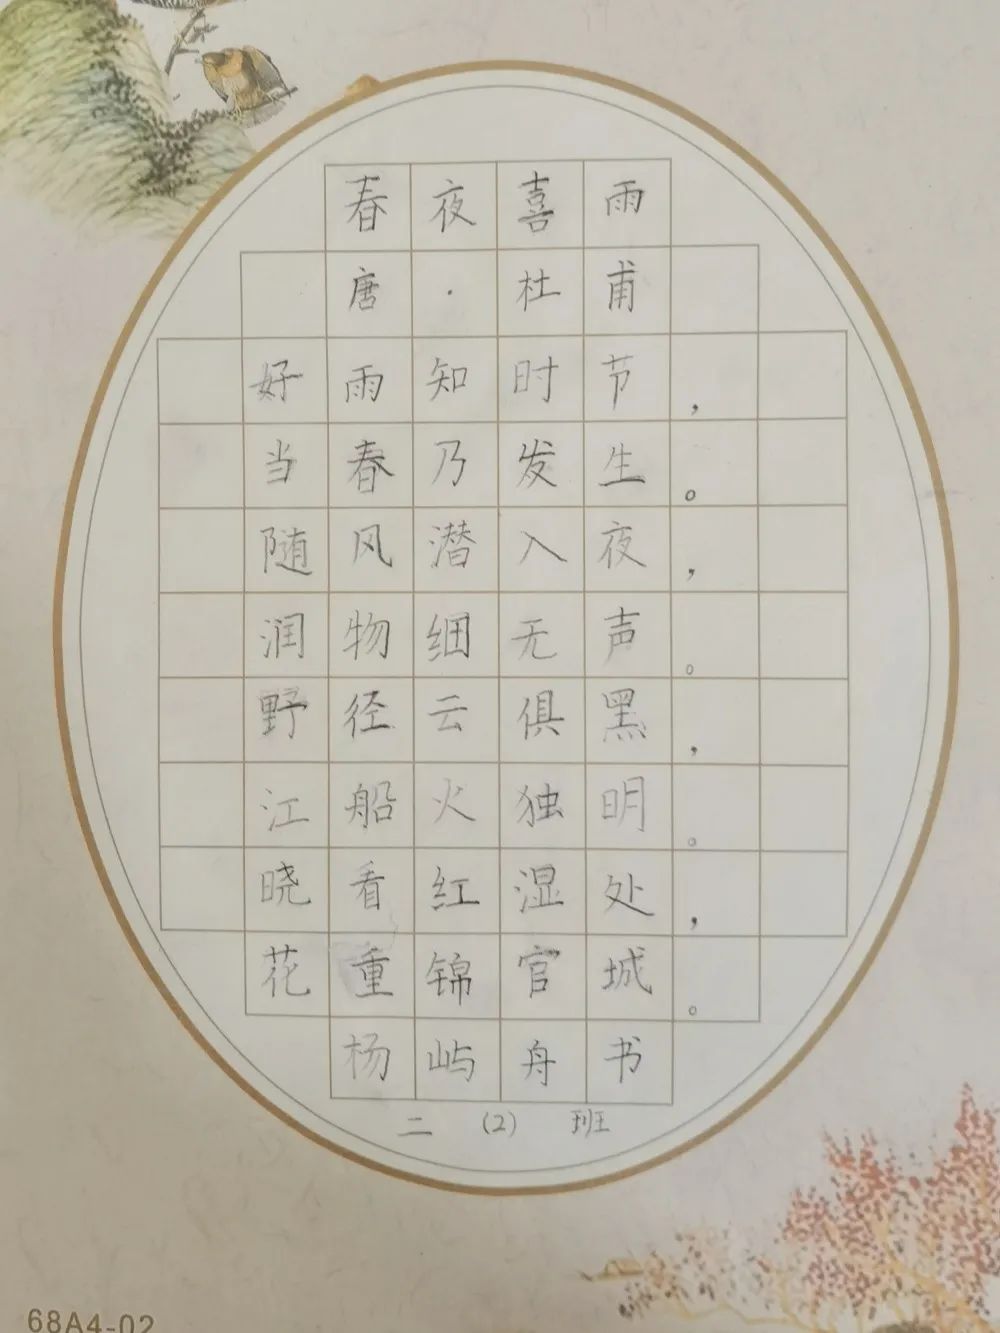 春夜喜雨
唐·杜甫
好雨知时节，
当春乃发生。
随风潜入夜，
润物细无声。
野径云俱黑，
江船火独明。
晓看红湿处，
花重锦官城。
杨屿舟书
二（2）班
68A4-02